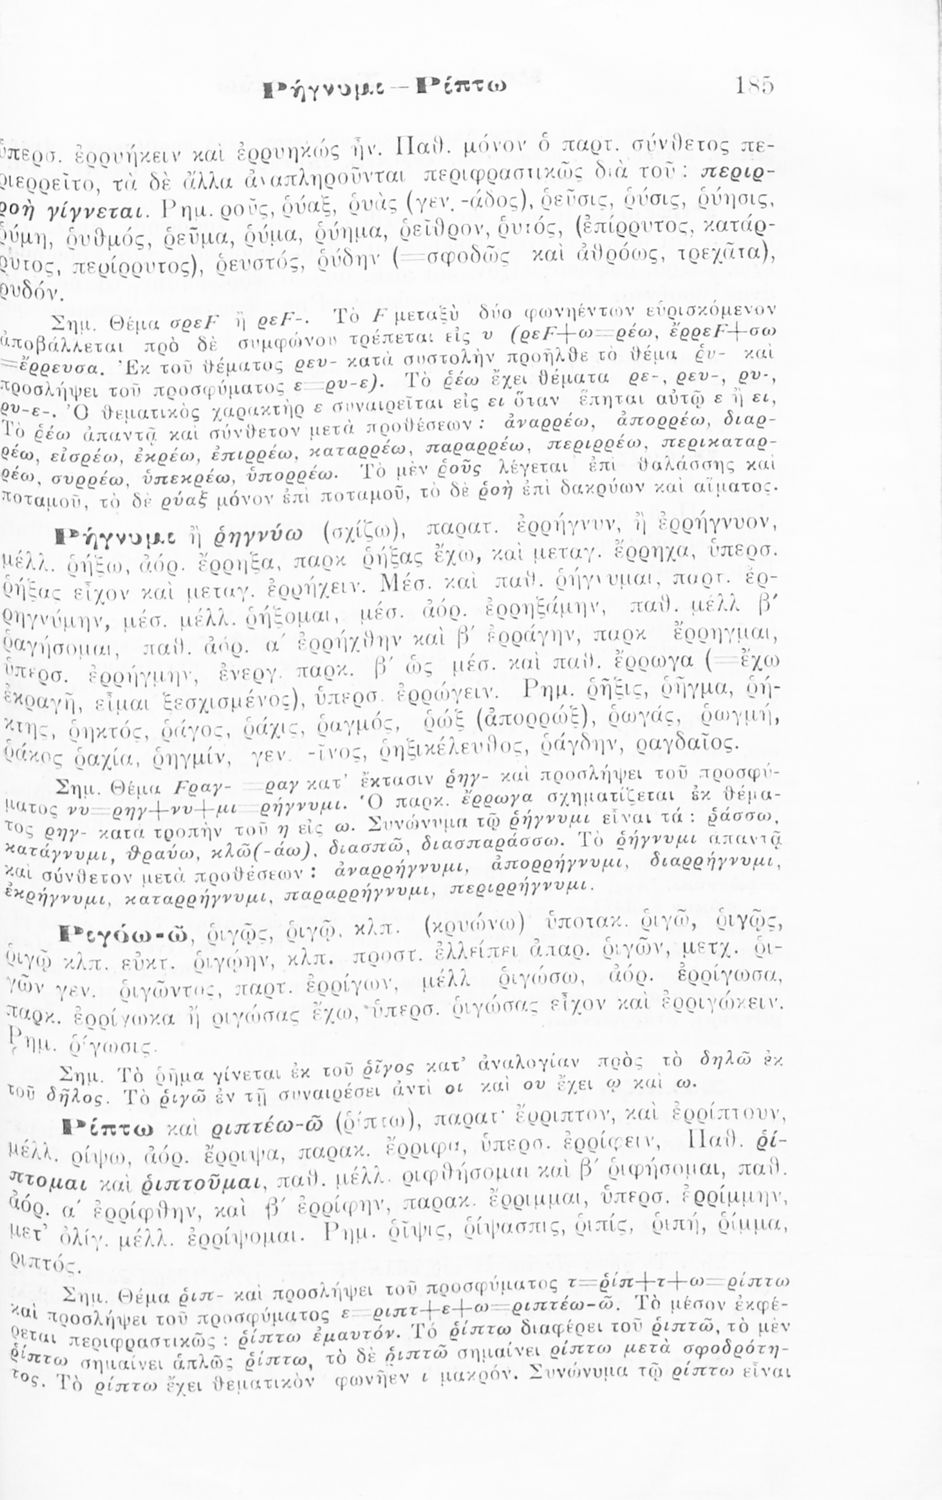 Ῥήγνυμι — Ῥίπτω 185
ὑπερσ. ἐρρυήκειν καὶ ἐρρυηκώς ἦν. Παθ. μόνον ὁ παρτ. σύνθετος πε-
ριερρεῖτο, τὰ δὲ ἄλλα ἀναπληροῦνται περιφραστικῶς διὰ τοῦ : περιρ-
ροὴ γίγνεται. Ρημ. ροῦς, ῥύαξ, ῥυὰς (γεν. -άδος), ῥεῦσις, ῥύσις, ῥύησις,
ῥύμη, ῥυθμός, ῥεῦμα, ῥύμα, ῥύημα, ῥεῖθρον, ῥυτός, (ἐπίρρυτος, κατάρ-
ρυτος, περίρρυτος), ῥευστός, ῥύδην (=σφοδῶς καὶ ἀθρόως, τρεχᾶτα),
ρυδόν.
Σημ. Θέμα σρεF ἢ ρεF-. Τὸ F μεταξὺ δύο φωνηέντων εὑρισκόμενον
ἀποβάλλεται πρὸ δὲ συμφώνου τρέπεται εἰς υ (ρεF+ω=ρέω, ἔρρεF+σω
=ἔρρευσα. Ἐκ τοῦ θέματος ρευ- κατὰ συστολὴν προῆλθε τὸ θέμα ῥυ- καὶ
προσλήψει τοῦ προσφύματος ε=ρυ-ε). Τὸ ῥέω ἔχει θέματα ρε-, ρευ-, ρυ-,
ρυ-ε-. Ὁ θεματικὸς χαρακτὴρ ε συναιρεῖται εἰς ει ὅταν ἕπηται αὐτῷ ε ἢ ει,
Τὸ ῥέω ἀπαντᾷ καὶ σύνθετον μετὰ προθέσεων : ἀναρρέω, ἀπορρέω, διαρ-
ρέω, εἰσρέω, ἐκρέω, ἐπιρρέω, καταρρέω, παραρρέω, περιρρέω, περικαταρ-
ρέω, συρρέω, ὑπεκρέω, ὑπορρέω. Τὸ μὲν ῥοῦς λέγεται ἐπὶ θαλάσσης καὶ
ποταμοῦ, τὸ δὲ ρύαξ μόνον ἐπὶ ποταμοῦ, τὸ δὲ ῥοὴ ἐπὶ δακρύων καὶ αἵματος.
Ῥήγνυμι ἢ ῥηγνύω (σχίζω), παρατ. ἐρρήγνυν, ἢ ἐρρήγνυον,
μέλλ. ῥήξω, ἀόρ. ἔρρηξα, παρκ ῥήξας ἔχω, καὶ μεταγ. ἔρρηχα, ὑπερσ.
ῥήξας εἶχον καὶ μεταγ. ἐρρήχειν. Μέσ. καὶ παθ. ῥήγνυμαι, παρτ. ἐρ-
ρηγνύμην, μέσ. μέλλ. ῥήξομαι, μέσ. ἀόρ. ἐρρηξάμην, παθ. μέλλ β΄
ῥαγήσομαι, παθ. ἀόρ. α΄ ἐρρήχθην καὶ β΄ ἐρράγην, παρκ ἔρρηγμαι,
ὑπερσ. ἐρρήγμην, ἐνεργ. παρκ. β΄ ὡς μέσ. καὶ παθ. ἔρρωγα (=ἔχω
ἐκραγῆ, εἶμαι ξεσχισμένος), ὑπερσ. ἐρρώγειν. Ρημ. ῥῆξις, ῥῆγμα, ῥή-
κτης, ῥηκτός, ῥάγος, ῥάχις, ῥαγμός, ῥώξ (ἀπορρώξ), ῥωγάς, ῥωγμή,
ῥάκος ῥαχία, ῥηγμίν, γεν. -ῖνος, ῥηξικέλευθος, ῥάγδην, ραγδαῖος.
Σημ. Θέμα Fραγ-=ραγ κατ' ἔκτασιν ῥηγ- καὶ προσλήψει τοῦ προσφύ-
ματος νυ=ρηγ+νυ+μι=ρήγνυμι. Ὁ παρκ. ἔρρωγα σχηματίζεται ἐκ θέμα-
τος ρηγ- κατὰ τροπὴν τοῦ η εἰς ω. Συνώνυμα τῷ ῥήγνυμι εἶναι τά : ῥάσσω,
κατάγνυμι, θραύω, κλῶ(-άω), διασπῶ, διασπαράσσω. Τὸ ῥήγνυμι ἀπαντᾷ
καὶ σύνθετον μετὰ προθέσεων : ἀναρρήγνυμι, ἀπορρήγνυμι, διαρρήγνυμι,
ἐκρήγνυμι, καταρρήγνυμι, παραρρήγνυμι, περιρρήγνυμι.
Ῥιγόω-ῶ, ῥιγῷς, ῥιγῷ, κλπ. (κρυώνω) ὑποτακ. ῥιγῶ, ῥιγῷς,
ῥιγῷ κλπ. εὐκτ. ῥιγῴην, κλπ. προστ. ἐλλείπει ἀπαρ. ῥιγῶν, μετχ. ῥι-
γῶν γεν. ῥιγῶντος, παρτ. ἐρρίγων, μέλλ ῥιγώσω, ἀόρ. ἐρρίγωσα,
παρκ. ἐρρίγωκα ἢ ριγώσας ἔχω, ὑπερσ. ῥιγώσας εἶχον καὶ ἐρριγώκειν.
Ρημ. ῥίγωσις.
Σημ. Τὸ ῥῆμα γίνεται ἐκ τοῦ ῥῖγος κατ' ἀναλογίαν πρὸς τὸ δηλῶ ἐκ
τοῦ δῆλος. Τὸ ῥιγῶ ἐν τῇ συναιρέσει ἀντὶ οι καὶ ου ἔχει ῳ καὶ ω.
Ῥίπτω καὶ ριπτέω-ῶ (ῥίπτω), παρατ· ἔρριπτον, καὶ ἐρρίπτουν,
μέλλ. ρίψω, ἀόρ. ἔρριψα, παρακ. ἔρριφα, ὑπερσ. ἐρρίφειν, Παθ. ῥί-
πτομαι καὶ ῥιπτοῦμαι, παθ. μέλλ. ριφθήσομαι καὶ β΄ ῥιφήσομαι, παθ.
ἀόρ. α΄ ἐρρίφθην, καὶ β΄ ἐρρίφην, παρακ. ἔρριμμαι, ὑπερσ. ἐρρίμμην,
μετ' ὀλίγ. μέλλ. ἐρρίψομαι. Ρημ. ῥῖψις, ῥίψασπις, ῥιπίς, ῥιπή, ῥίμμα,
ριπτός.
Σημ. Θέμα ῥιπ- καὶ προσλήψει τοῦ προσφύματος τ=ῥίπ+τ+ω=ρίπτω
καὶ προσλήψει τοῦ προσφύματος ε=ριπτ+ε+ω=ριπτέω-ῶ. Τὸ μέσον ἐκφέ-
ρεται περιφραστικῶς : ῥίπτω ἐμαυτόν. Τό ῥίπτω διαφέρει τοῦ ῥιπτῶ, τὸ μὲν
ῥίπτω σημαίνει ἁπλῶς ῥίπτω, τὸ δὲ ῥιπτῶ σημαίνει ρίπτω μετὰ σφοδρότη-
τος. Τὸ ρίπτω ἔχει θεματικὸν φωνῆεν ι μακρόν. Συνώνυμα τῷ ρίπτω εἶναι